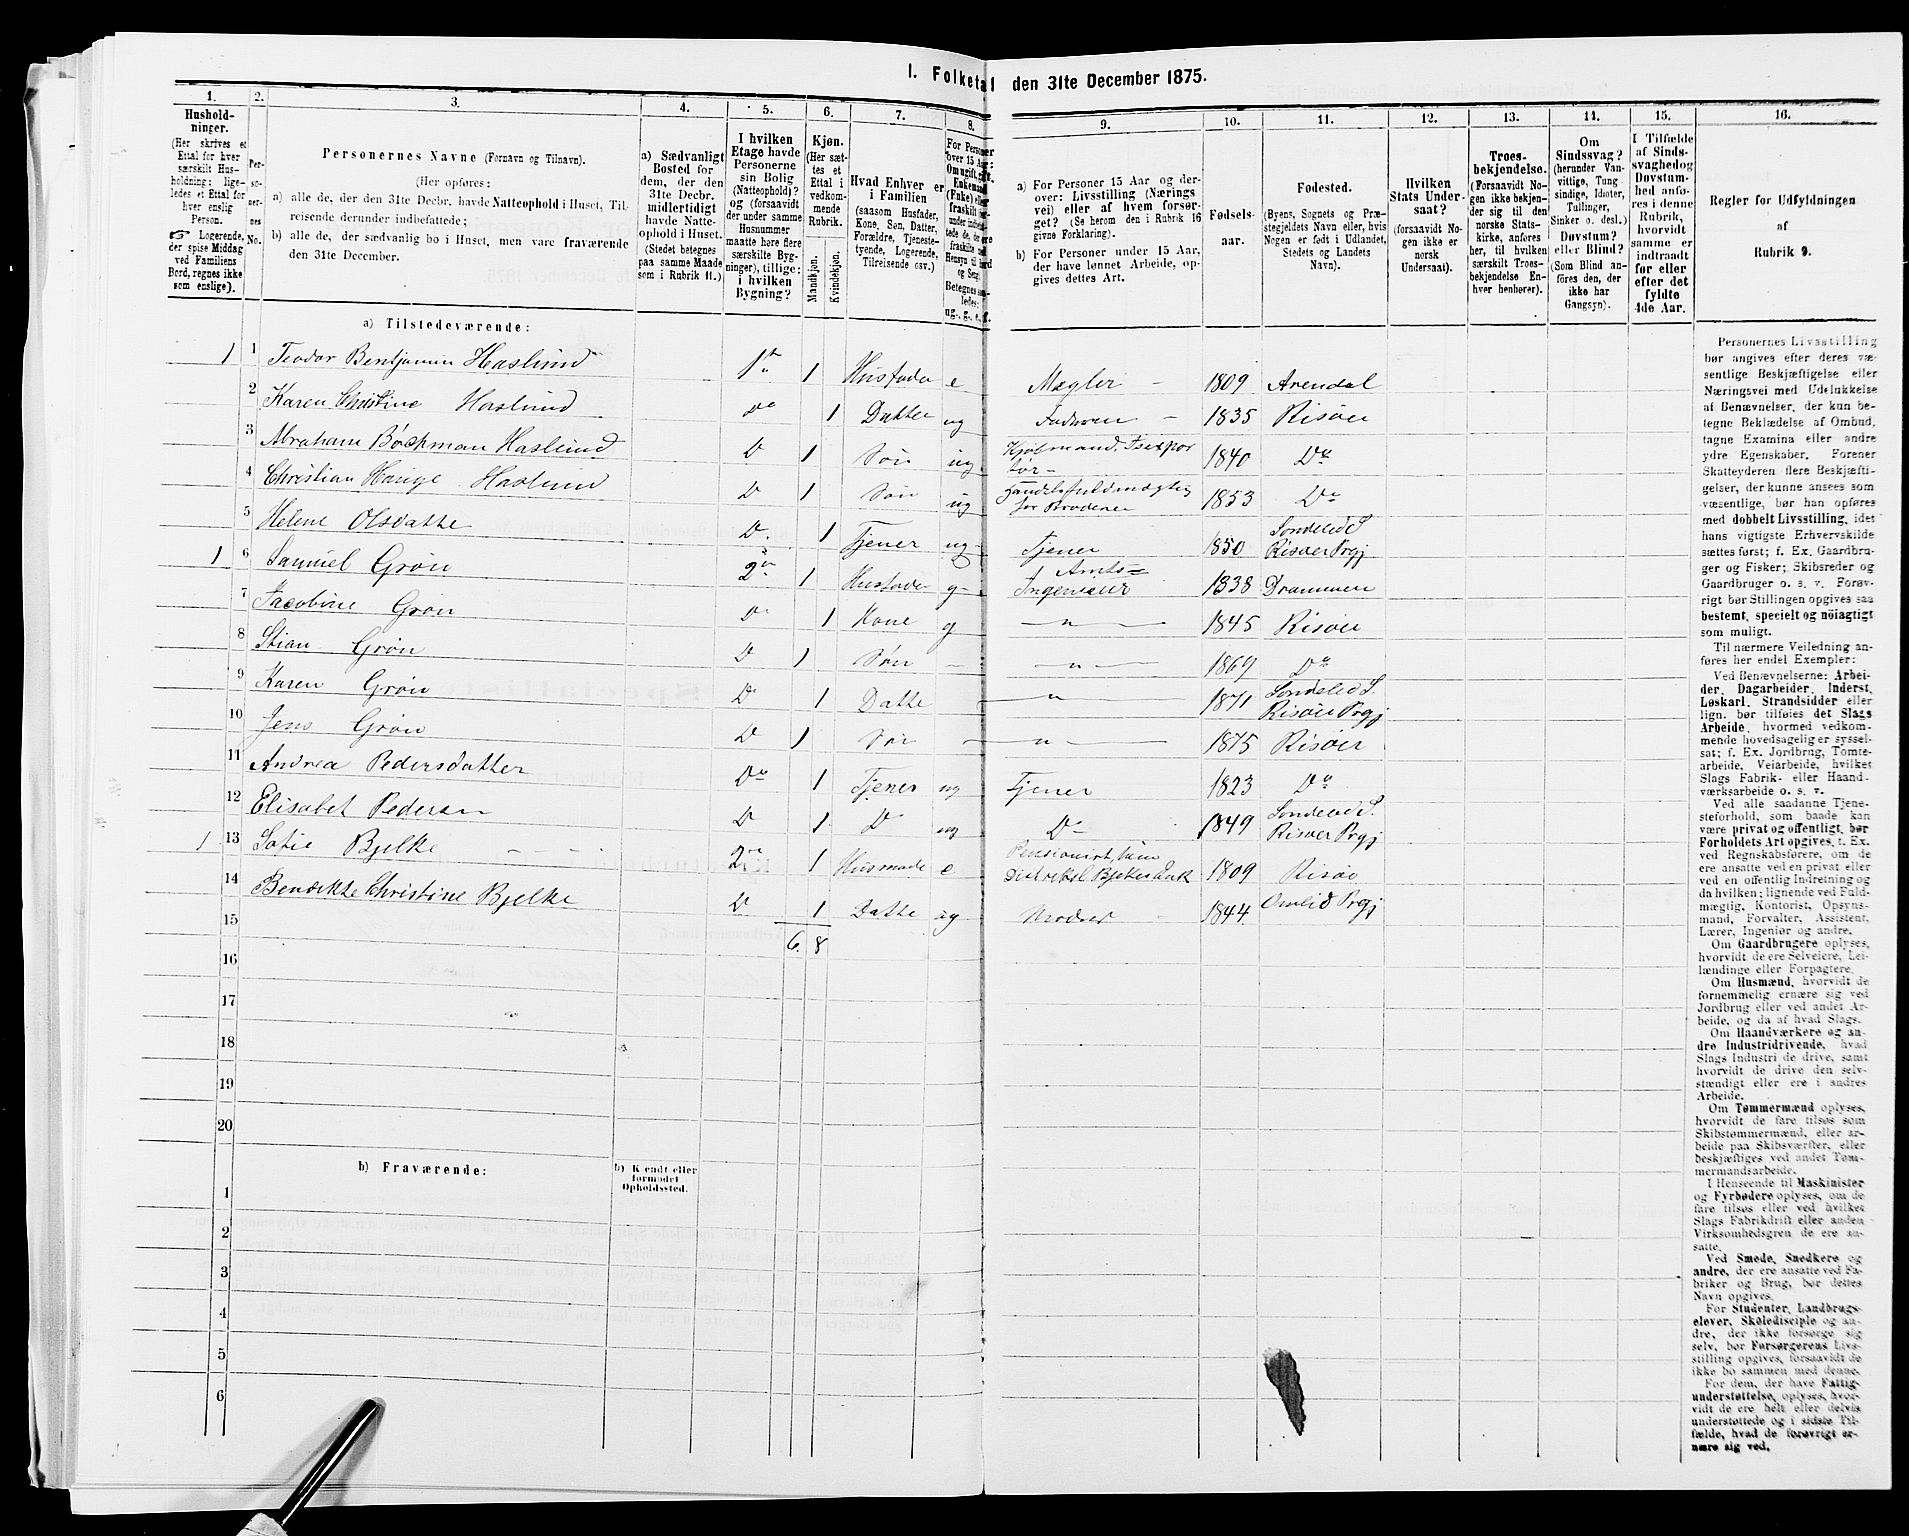 I. Folketal den 31te December 1875.
1. 2. 3. 4. 5. 6. 7. 8. 9. 10. 11. 12. 13. 14. 15. 16.
Husholdninger.
(Her skrives et
Ettal for hver
særskilt Husholdning; ligeledes
et Ettal for
hver enslig
Person.
☞ Logerende,
der spise Middag
ved Familiens
Bord, regnes ikke
som enslige).
Personernes
No.
Personernes Navne (Fornavn og Tilnavn).
(Her opføres:
a) alle de, der den 31te Decbr. havde Natteophold i Huset, Tilreisende derunder indbefattede;
b) alle de, der sædvanlig bo i Huset, men vare fraværende
den 31te December.
a) Sædvanligt
Bosted for
dem, der den
31te Decbr.
midlertidigt
havde Natteophold
i Huset.
(Stedet betegnes
paa samme Maade
som i Rubrik 11.)
I hvilken
Etage havde
Personerne
sin Bolig
(Natteophold)?
og (forsaavidt
der under samme
Husnummer
maatte høre flere
særskilte Bygninger),
tillige:
i hvilken
Bygning?
Kjøn.
(Her sættes
et
Ettal i
vedkommende
Rubrik.
Mandkjøn.
Kvindekjøn.
Hvad Enhver er
i Familien
(saasom Husfader,
Kone, Søn, Datter,
Forældre, Tjenestetyende,
Logerende,
Tilreisende osv.)
For Personer
over 15 Aar:
a) For Personer 15 Aar og derover:
Livsstilling (Næringsvei)
eller af hvem forsørget?
(Se herom den i Rubrik 16
givne Forklaring).
b) For Personer under 15 Aar,
der have lønnet Arbeide, opgives
dettes Art.
Fødselsaar.
Fødested.
(Byens, Sognets og Præstegjeldets
Navn eller, hvis
Nogen er født i Udlandet,
Stedets og Landets
Navn).
Hvilken
Stats Undersaat?
(forsaavidt Nogen
ikke er
norsk
Undersaat).
Troesbekjendelse.
(Forsaavidt Nogen
ikke bekjender
sig til den
norske Statskirke,
anføres
her, til hvilken
særskilt Troesbekjendelse
Enhver
henhører).
Om
Sindssvag?
(herunder Vanvittige,
Tungsindige,
Idioter,
Tullinger,
Sinker o. desl.)
Døvstum?
eller Blind?
(Som Blind anføres
den, der
ikke har
Gangsyn).
I Tilfælde
af Sindssvaghed
og
Døvstumhed
anføres
i denne
Rubrik,
hvorvidt
samme er
indtraadt
før eller
efter det
fyldte
4de Aar.
Regler for Udfyldningen
af
Rubrik 9.
a) Tilstedeværende:
1 1 Teodor Bentjamin Haslund 1ste 1 Husfader e Mægler 1809 Arendal
2 Karen Christine Haslund Do 1 Datter ug Faderen 1835 Risøer
3 Abraham Bøckman Haslund D 1 Søn ug Kjøbmand, 1840 Do
4 Christian Hauge Haslund D 1 Søn ug Handelsfuldmægtig for Broderen 1853 Do
5 Helene Olsdatte D. 1 Tjener ug Tjener 1850 Søndeled S. Risøer Prgj
1 6 Samuel Grøn 2den 1 Husfader g Amts= Ingeniør 1838 Drammen
7 Jacobine Grøn Do 1 Kone g " 1845 Risøer
8 Stian Grøn D 1 Søn " 1869 Do
9 Karen Grøn D 1 Datte " 1871 Søndeled S. Risøer Prgj
10 Jens Grøn D 1 Søn " 1875 Risøer
11 Andrea Pedersdatter Do 1 Tjener ug Tjener 1823 Do
12 Elisabet Pedersen D 1 D ug Do 1849 Søndeled S. Risøer Prgj
1 13 Sofie Bjelke 2den 1 Husmode e Pensionist, 1809 Risøe
14 Bendikte Christine Bjelke D 1 Datte ug Moder 1844 Omlid Prgj
15 6. 8
16
17
18
19
20
b) Fraværende:
b) Kjendt eller
formodet
Opholdssted.
1
2
3
4
5
6
Personernes Livsstilling
bør angives efter deres væsentlige
Beskjæftigelse eller
Næringsvei med Udelukkelse
af Benævnelser, der kun betegne
Beklædelse af Ombud,
tagne Examina eller andre
ydre Egenskaber. Forener
Skatteyderen flere Beskjæftigelser,
der kunne ansees som
væsentlige, bør han opføres
med dobbelt Livsstilling, idet
hans vigtigste Erhvervskilde
sættes først; f. Ex. Gaardbruger
og Fisker; Skibsreder og
Gaardbruger o. s. v. Forøvrigt
bør Stillingen opgives saa
bestemt, specielt og nøiagtigt
som muligt.
Til nærmere Veiledning anføres
her endel Exempler:
Ved Benævnelserne: Arbeider,
Dagarbeider, Inderst,
Løskarl, Strandsidder eller
lign. bør tilføies det Slags
Arbeide, hvormed vedkommende
hovedsagelig er sysselsat;
f. Ex. Jordbrug, Tomtearbeide,
Veiarbeide, hvilket
Slags Fabrik- eller Haandværksarbeide
o. s. v.
Ved alle saadanne Tjenesteforhold,
som baade kan
være privat og offentligt, bør
Forholdets Art opgives, f. Ex.
ved Regnskabsførere, om de
ere ansatte ved en privat eller
ved en offentlig Indretning og
da hvilken; lignende ved Fuldmægtig,
Kontorist, Opsynsmand,
Forvalter, Assistent,
Lærer, Ingeniør og andre.
Om Gaardbrugere oplyses,
hvorvidt de ere Selveiere, Leilændinge
eller Forpagtere.
Om Husmænd, hvorvidt de
fornemmelig ernære sig ved
Jordbrug eller ved andet Arbeide,
og da af hvad Slags.
Om Haandværkere og andre
Industridrivende, hvad
Slags Industri de drive, samt
hvorvidt de drive den selvstændigt
eller ere i andres
Arbeide.
Om Tømmermænd oplyses,
hvorvidt de fare tilsøs som
Skibstømmermænd, eller arbeide
paa Skibsværfter, eller
beskjæftiges ved andet Tømmermandsarbeide.
I Henseende til Maskinister
og Fyrbødere oplyses, om de
fare tilsøs eller ved hvilket
Slags Fabrikdrift eller anden
Virksomhedsgren de ere ansatte.
Ved Smede, Snedkere og
andre, der ere ansatte ved Fabriker
og Brug, bør dettes
Navn opgives.
For Studenter, Landbrugselever,
Skoledisciple og andre,
der ikke forsørge sig
selv, bør Forsørgerens Livsstilling
opgives, forsaavidt de
ikke bo sammen med denne.
For dem, der have Fattigunderstøttelse,
oplyses, hvorvidt
de ere helt eller delvis
understøttede og i sidste Tilfælde,
hvad de forøvrigt ernære
sig ved.